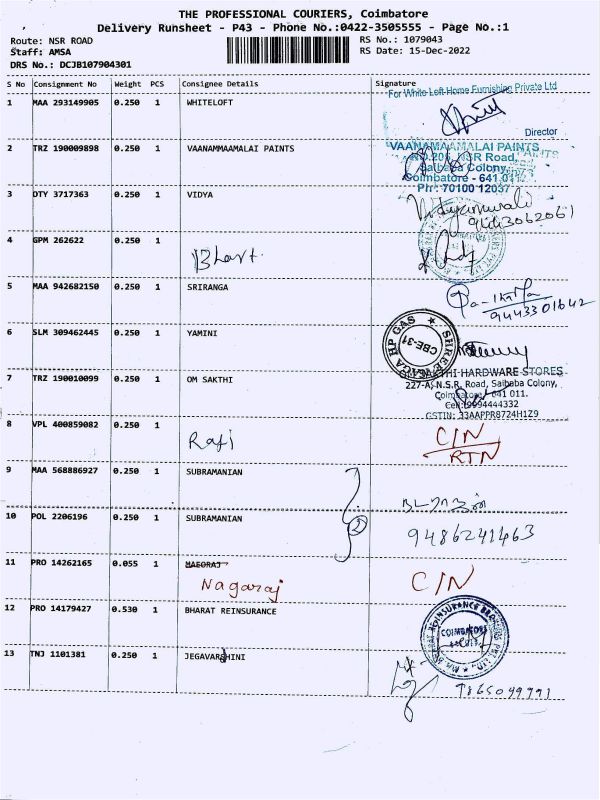 THE PROFESSIONAL COURIERS, Coimbatore
Delivery Runsheet - P43 - Phone No.:0422-3505555 - Page No.:1
Route: NSR ROAD
Staff: AMSA
DRS No.: DCJB107904301
RS No.: 1079043
RS Date: 15-Dec-2022
S No Consignment No Weight PCS Consignee Details Signature
For White Left Home Furnishing Private Ltd
1 MAA 293149905 0.250 1 WHITELOFT
Director
2 TRZ 190009898 0.250 1 VAANAMMAAMALAI PAINTS
VAANAMAAMALAI PAINTS
NSR Road,
Saibaba Colony,
Coimbatore - 641 011.
Ph: 70100 12037
3 DTY 3717363 0.250 1 VIDYA
4 GPM 262622 0.250 1 Bhart.
5 MAA 942682150 0.250 1 SRIRANGA
9443301642
6 SLM 309462445 0.250 1 YAMINI
HP GAS
CBE-31
7 TRZ 190010099 0.250 1 OM SAKTHI
SAKTHI HARDWARE STORES
227-A, N.S.R. Road, Saibaba Colony,
Coimbatore 641 011.
Cell: 9894444332
GSTIN: 33AAPPR8724H1Z9
8 VPL 400859082 0.250 1 Rafi C/N
RTN
9 MAA 568886927 0.250 1 SUBRAMANIAN
நடராஜன்
10 POL 2206196 0.250 1 SUBRAMANIAN 2 9486241463
11 PRO 14262165 0.055 1 MAEORAJ
Nagaraj C/N
12 PRO 14179427 0.530 1 BHARAT REINSURANCE
COIMBATORE
13 TNJ 1101381 0.250 1 JEGAVARDHINI